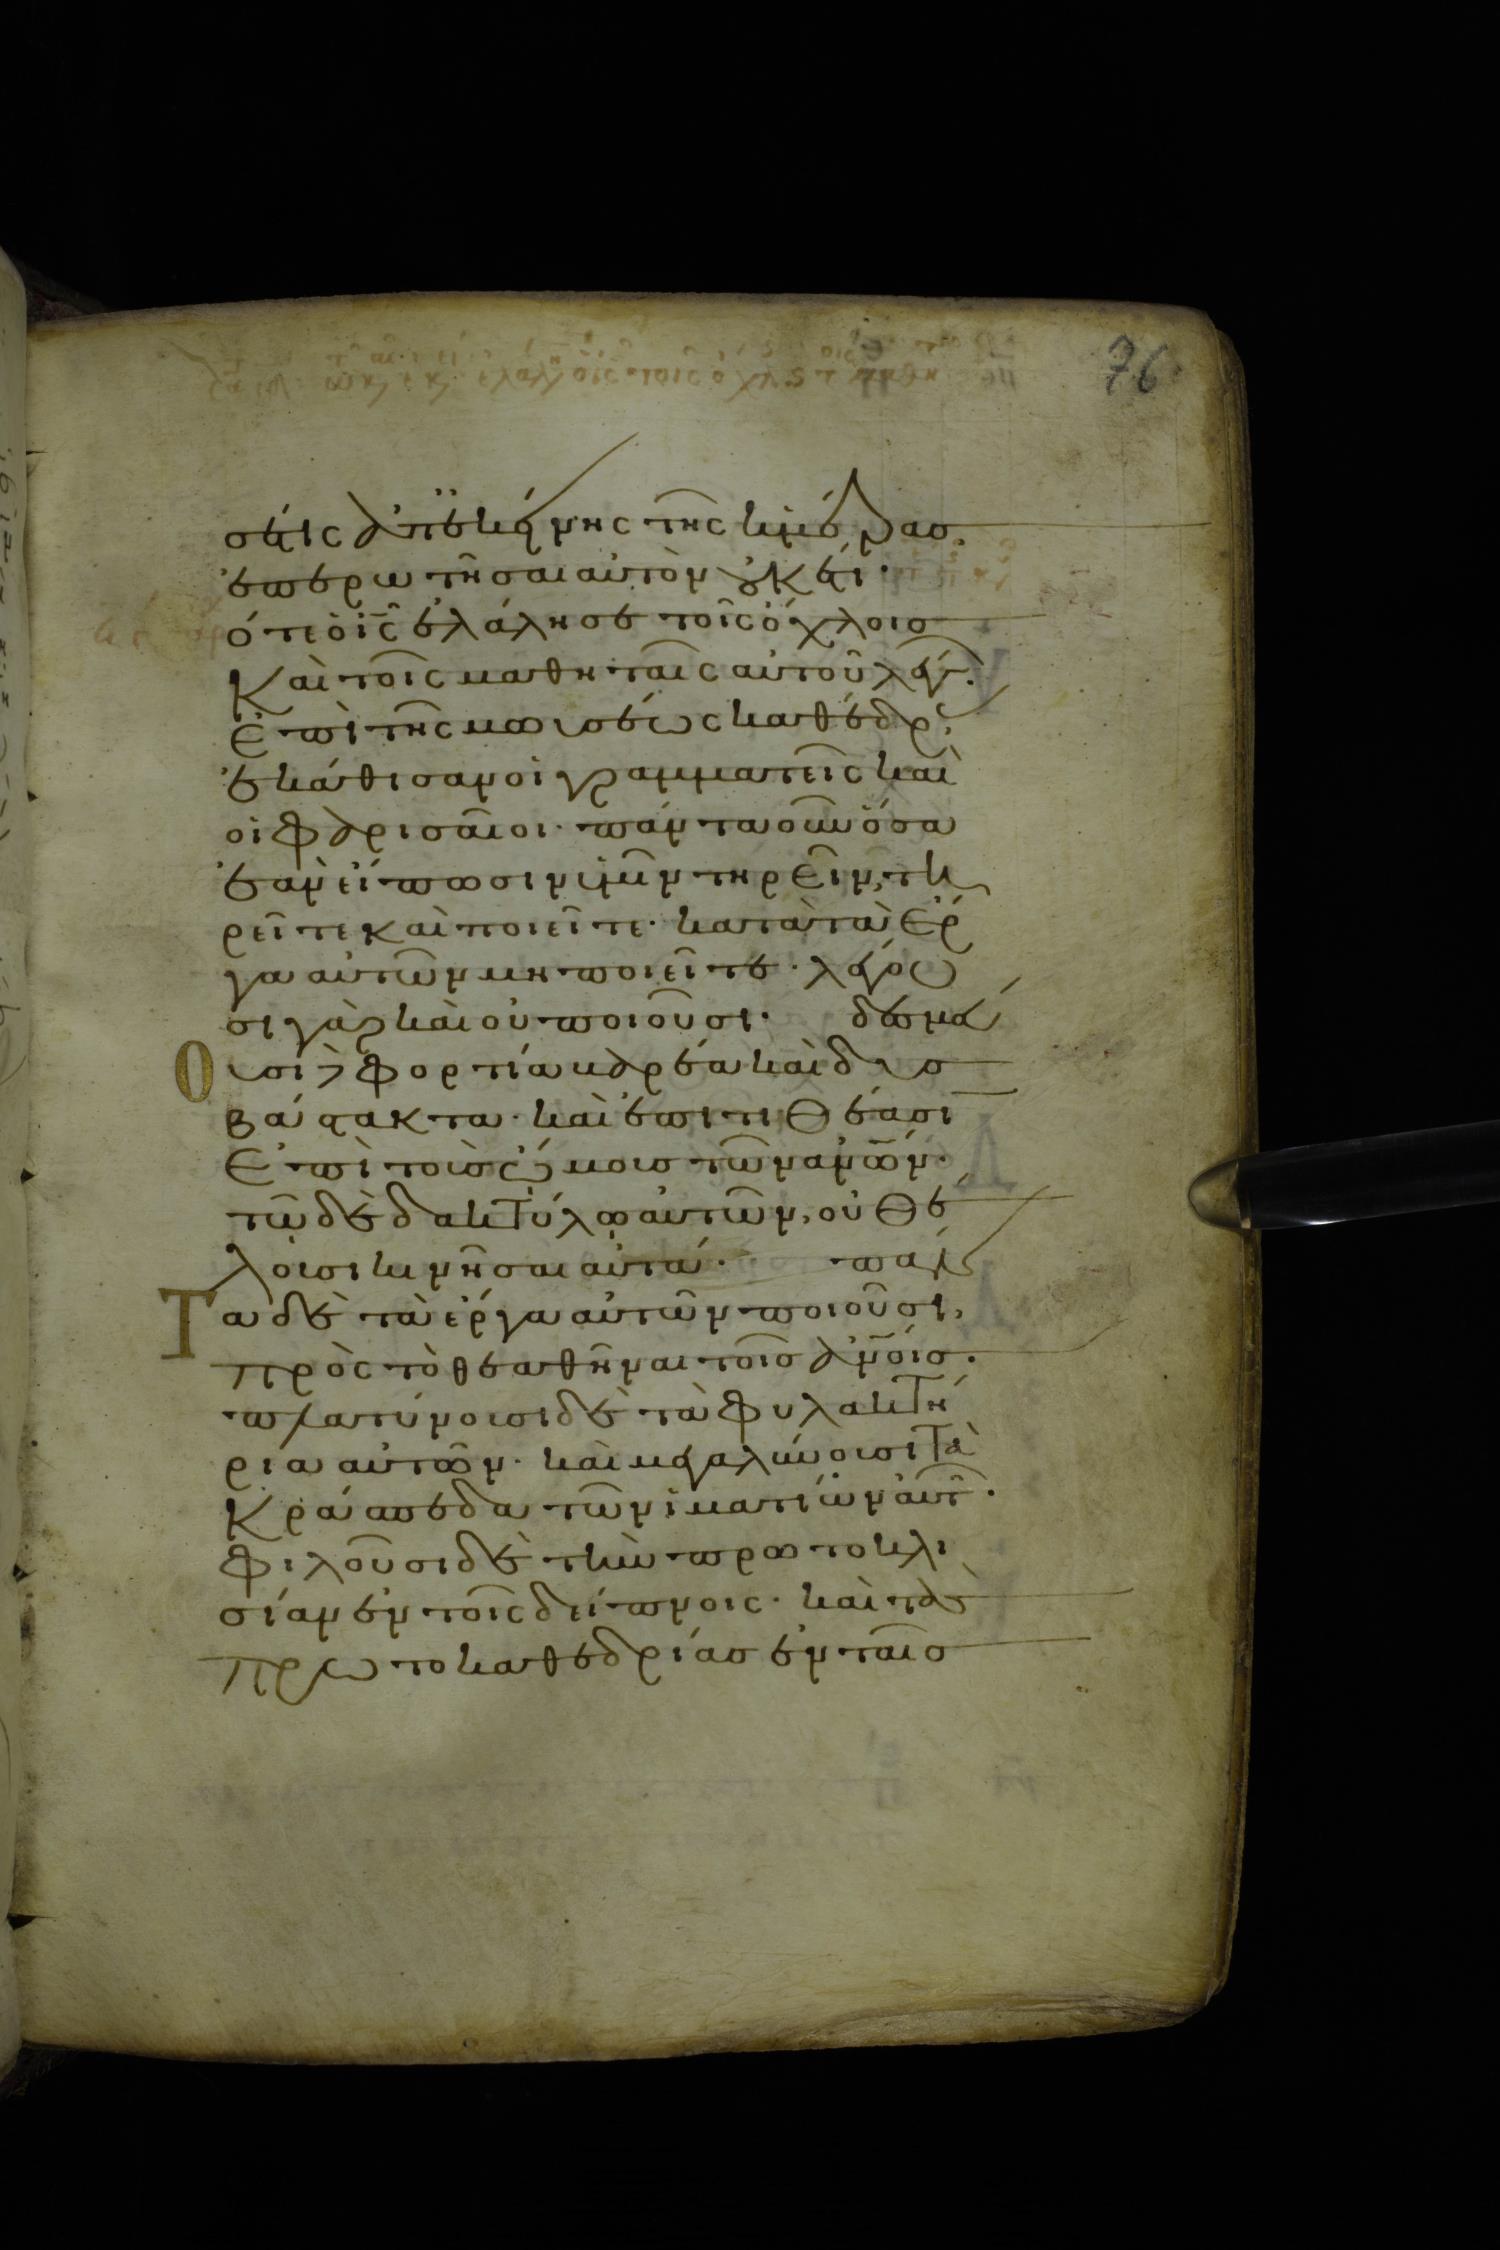 76
σέτις ἀπ ἐκείνης τῆς ἡμέρας
ἐπερωτῆσαι αὐτὸν οὐκέτι·
ὁ τε ὁ ι̅ς̅ ἐλάλησε τοῖς ὄχλοις
Καὶ τοῖς μαθηταῖς αὐτοῦ λέγων·
Ἐπὶ τῆς μωυσέως καθέδρας
ἐκάθισαν οἱ γραμματεῖς καὶ
οἱ φαρισαῖοι· πάντα οὖν ὅσα
ἐὰν εἴπωσιν ὑμῖν τηρεῖν, τη
ρεῖτε καὶ ποιεῖτε· κατὰ τὰ ἔρ
γα αὐτῶν μὴ ποιεῖτε· λέγου
σι γὰρ καὶ οὐ ποιοῦσι· δεσμεύ
Ουσι γὰρ φορτία βαρέα καὶ δυσ
βάστακτα· καὶ ἐπιτιθέασι
Ἐπὶ τοὺς ὤμους τῶν ἀνῶν·
τῶ δὲ δακτύλω αὐτῶν, οὐ θέ
λουσι κινῆσαι αὐτά· πάν
Τα δὲ τὰ ἔργα αὐτῶν ποιοῦσι,
πρὸς τὸ θεαθῆναι τοῖς ἀνοις·
πλατύνουσι δὲ τὰ φυλακτή
ρια αὐτῶν· καὶ μεγαλύνουσι τὰ
Κράσπεδα τῶν ἱματίων αὐτῶν·
φιλοῦσι δὲ τὴν πρωτοκλι
σίαν ἐν τοῖς δείπνοις· καὶ τὰς
πρωτοκαθεδρίας ἐν ταῖς